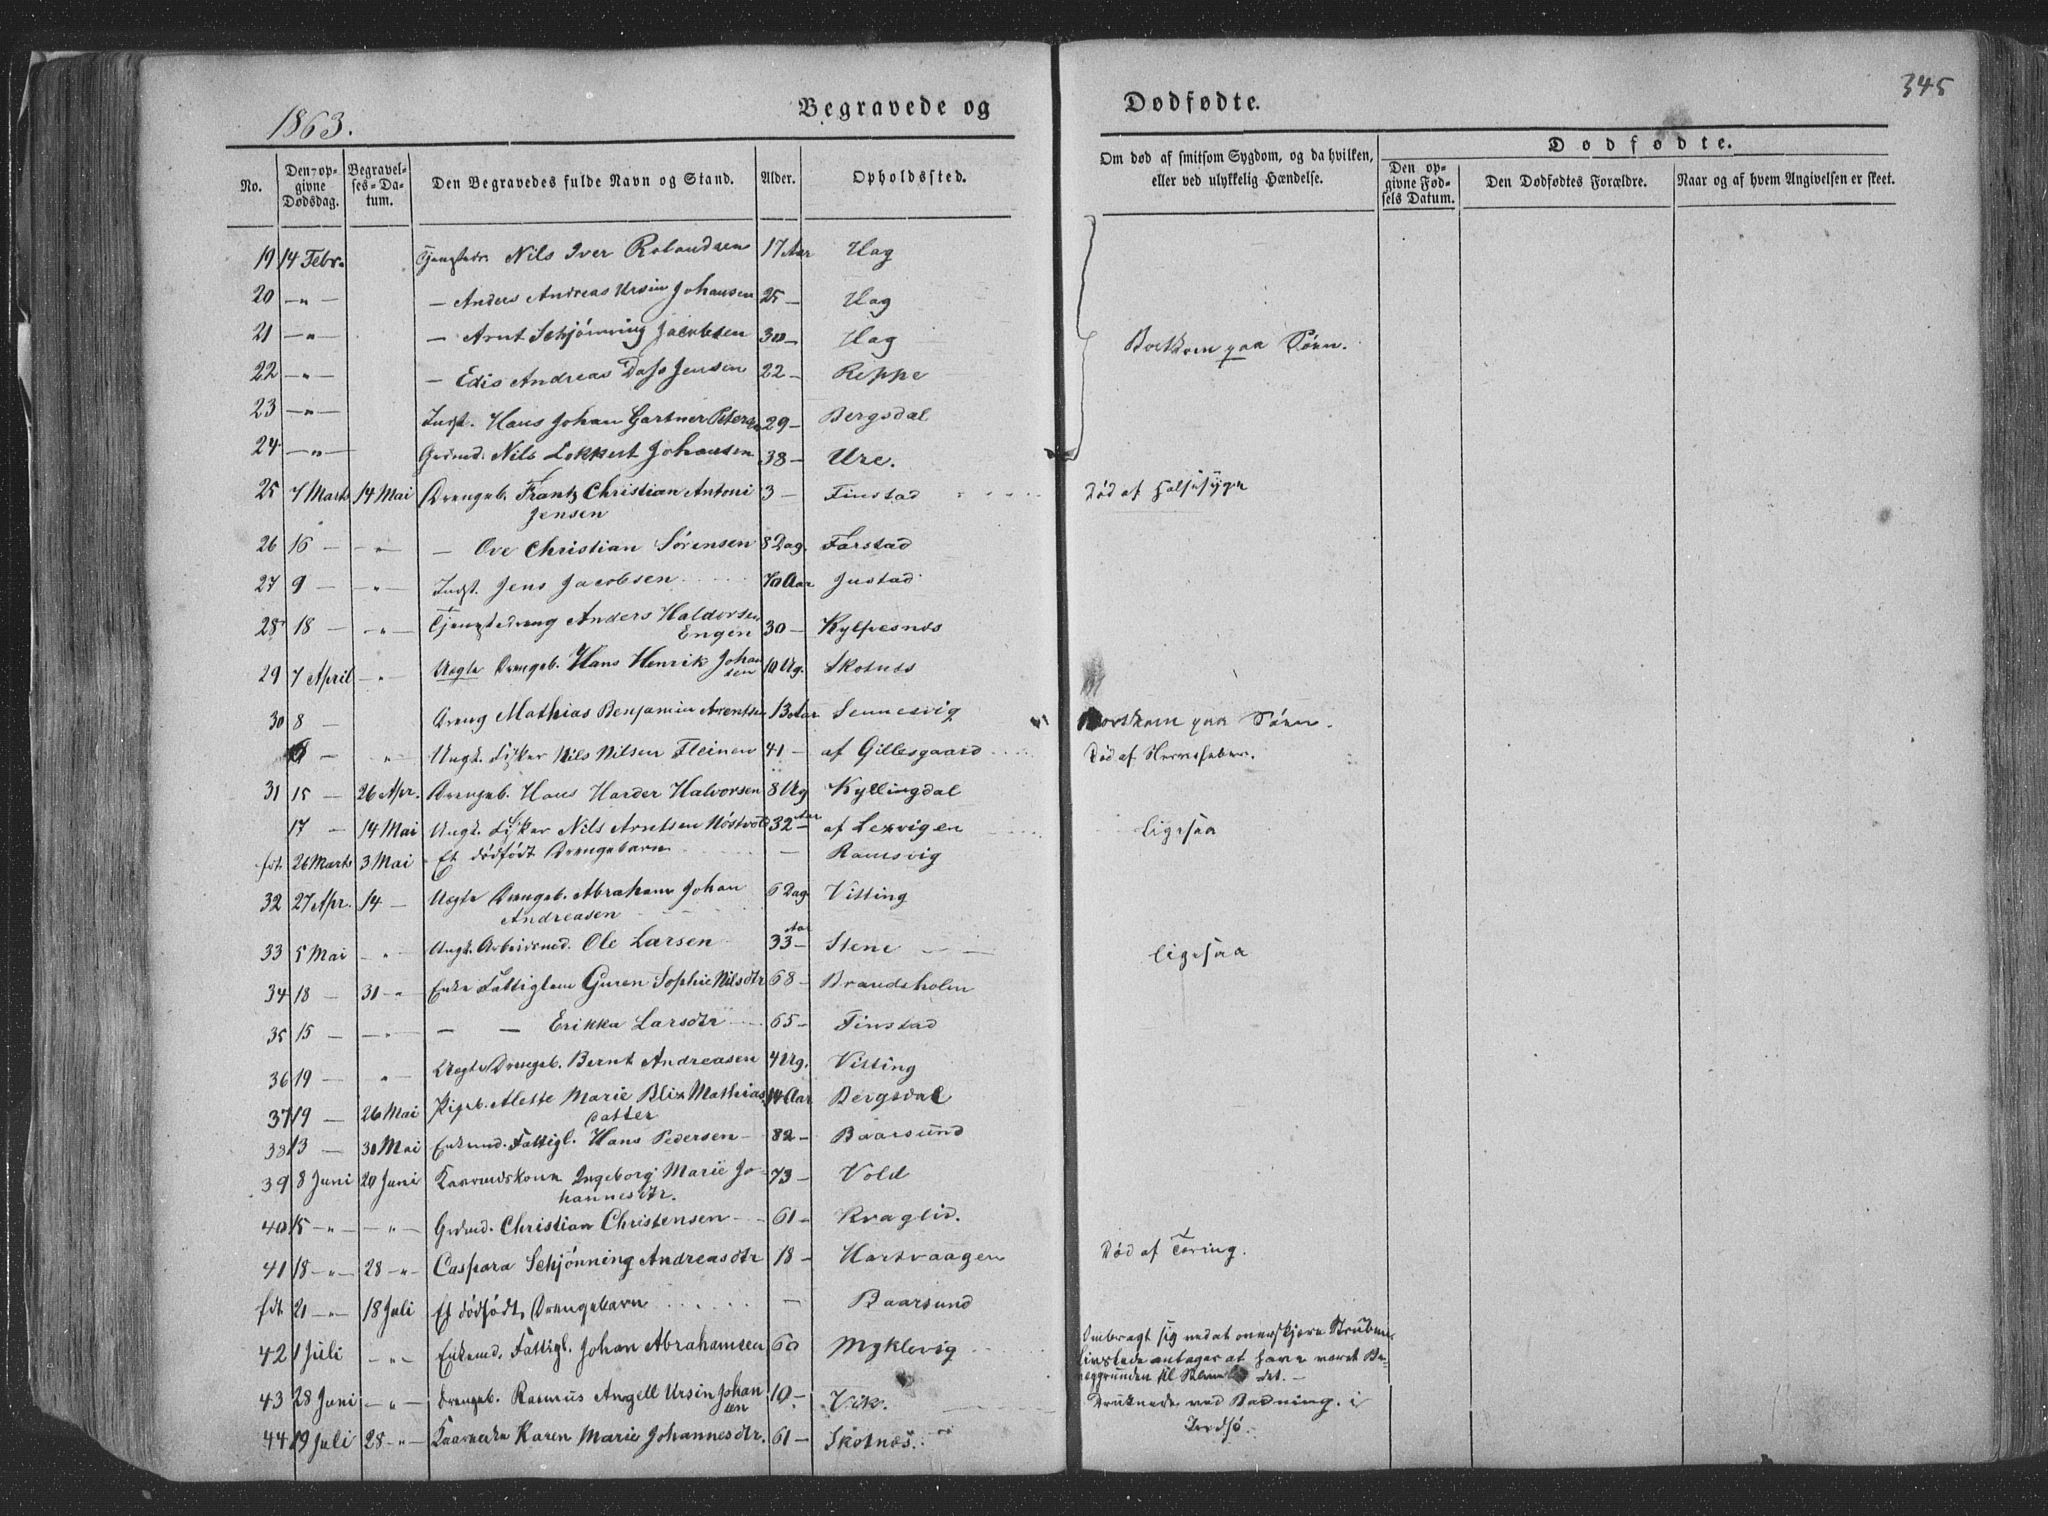 345
1863.
Begravede og Dødfødte.
No.
Den opgivne Dødsdag.
Begravelses-Datum.
Den Begravedes fulde Navn og Stand.
Alder.
Opholdssted.
Om død af smitsom Sygdom, og da hvilken, eller ved ulykkelig Hændelse.
Dødfødte.
Den opgivne Fødsels Datum.
Den Dødfødtes Forældre.
Naar og af hvem Angivelsen er skeet.
19 14 Febr. Nils Iver Rolandsen 17 Aar Hag
20 — " — — Anders Andreas Ursin Johansen 25 — Hag
21 — " — — Arnt Schjønning Jacobsen 30 — Hag Bortkom paa Søen.
22 — " — — Edis Andreas Dass Jensen 22 — Reppe
23 — " — Indst. Hans Johan Gartner Petersen 29 — Bergsdal
24 — " — Grdmd. Nils Lokkert Johansen 38 — Ure.
25 7 Marts 14 Mai Drengeb. Frantz Christian Antoni 3 — Finstad Død af Halssyge
Jensen
26 16 — — " — — Ove Christian Sørensen 8 Dag. Farstad
27 9 — — " — Indst. Jens Jacobsen 70 Aar Justad
28 18 — — " — Tjenestedreng Anders Haldorsen 30 — Kylpesnes
Engen
29 7 April — " Uægte Drengeb. Hans Henrik Johan 10 Ug. Skotnes
sen
30 8 — Dreng Mathias Benjamin Arentsen 13 Aar Sennesvig Bortkom paa Søen.
— " Ungk. Fisker Nils Nilsen Fleinen 41 — af Gillesgaard Død af Nervefeber.
31 15 — 26 Apr. Drengeb. Hans Harder Halvorsen 8 Ug Kyllingdal
17 — 14 Mai Ungk. Fisker Nils Arntsen 32 Aar af Lexvigen Ligesaa
fdt. 26 Marts 3 Mai Et dødfødt Drengebarn — Ramsvig
32 27 Apr. 14 — Uægte Drengeb. Abraham Johan 6 Dag Vitting
Andreasen
33 5 Mai — " — Ungk. Arbeidsmd. Ole Larsen 33 Aar Stene Ligesaa
34 18 — 31 " — Enke Fattiglem Guren Sophie Nilsdtr 68 — Brandsholm
35 15 — — " — — — Erikka Larsdtr 65 — Finstad
36 19 — " Uægte Drengeb. Bernt Andreasen 4 Ug. Vitting
37 19 — 26 Mai Pigeb. Alette Marie Blix Mathias 14 Aar Bergsdal
datter
38 13 — 30 Mai Enkemd. Fattigl. Hans Pedersen 82 — Baarsund
39 8 Juni 20 Juni Kaarmdskone Ingeborg Marie Jo- 73 — Vold
hannesdtr.
40 15 — " — — " — Grdmd. Christian Christensen 61 — Kraglid.
41 18 — " — 28 — " — Caspara Schjønning Andreasdtr 18 — Hartvaagen Død af Tæring.
fdt. 21 — " — 18 Juli Et dødfødt Drengebarn — Baarsund
42 1 Juli — " — Enkemd. Fattigl. Johan Abrahamsen 60 Myklevig Ombragt sig ved at overskjære Struben.
Livslede antages at have været Be-
væggrunden til det. —
43 28 Juni — " — Drengeb. Rasmus Angell Ursin Johan 10 — Vik. Druknede ved Badning i
sen Indsø.
44 19 Juli 28 — " — Kaarenke Karen Marie Johannesdtr. 61 — Skotnes.